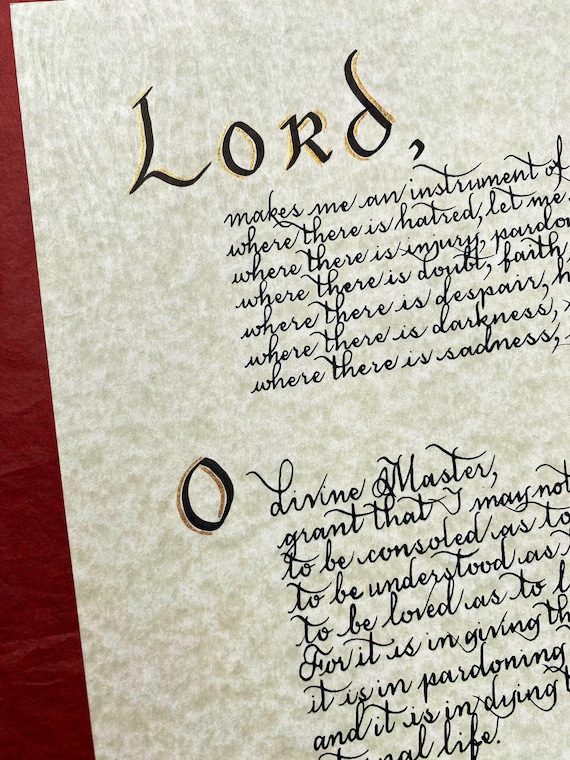 Lord,
makes me an instrument of
where there is hatred, let me
where there is injury,
where there is doubt, faith
where there is despair,
where there is darkness,
where there is sadness,
O Divine Master,
grant that I may not
to be consoled as to
to be understood as
to be loved as to
For it is in giving
it is in pardoning
and it is in dying
life.